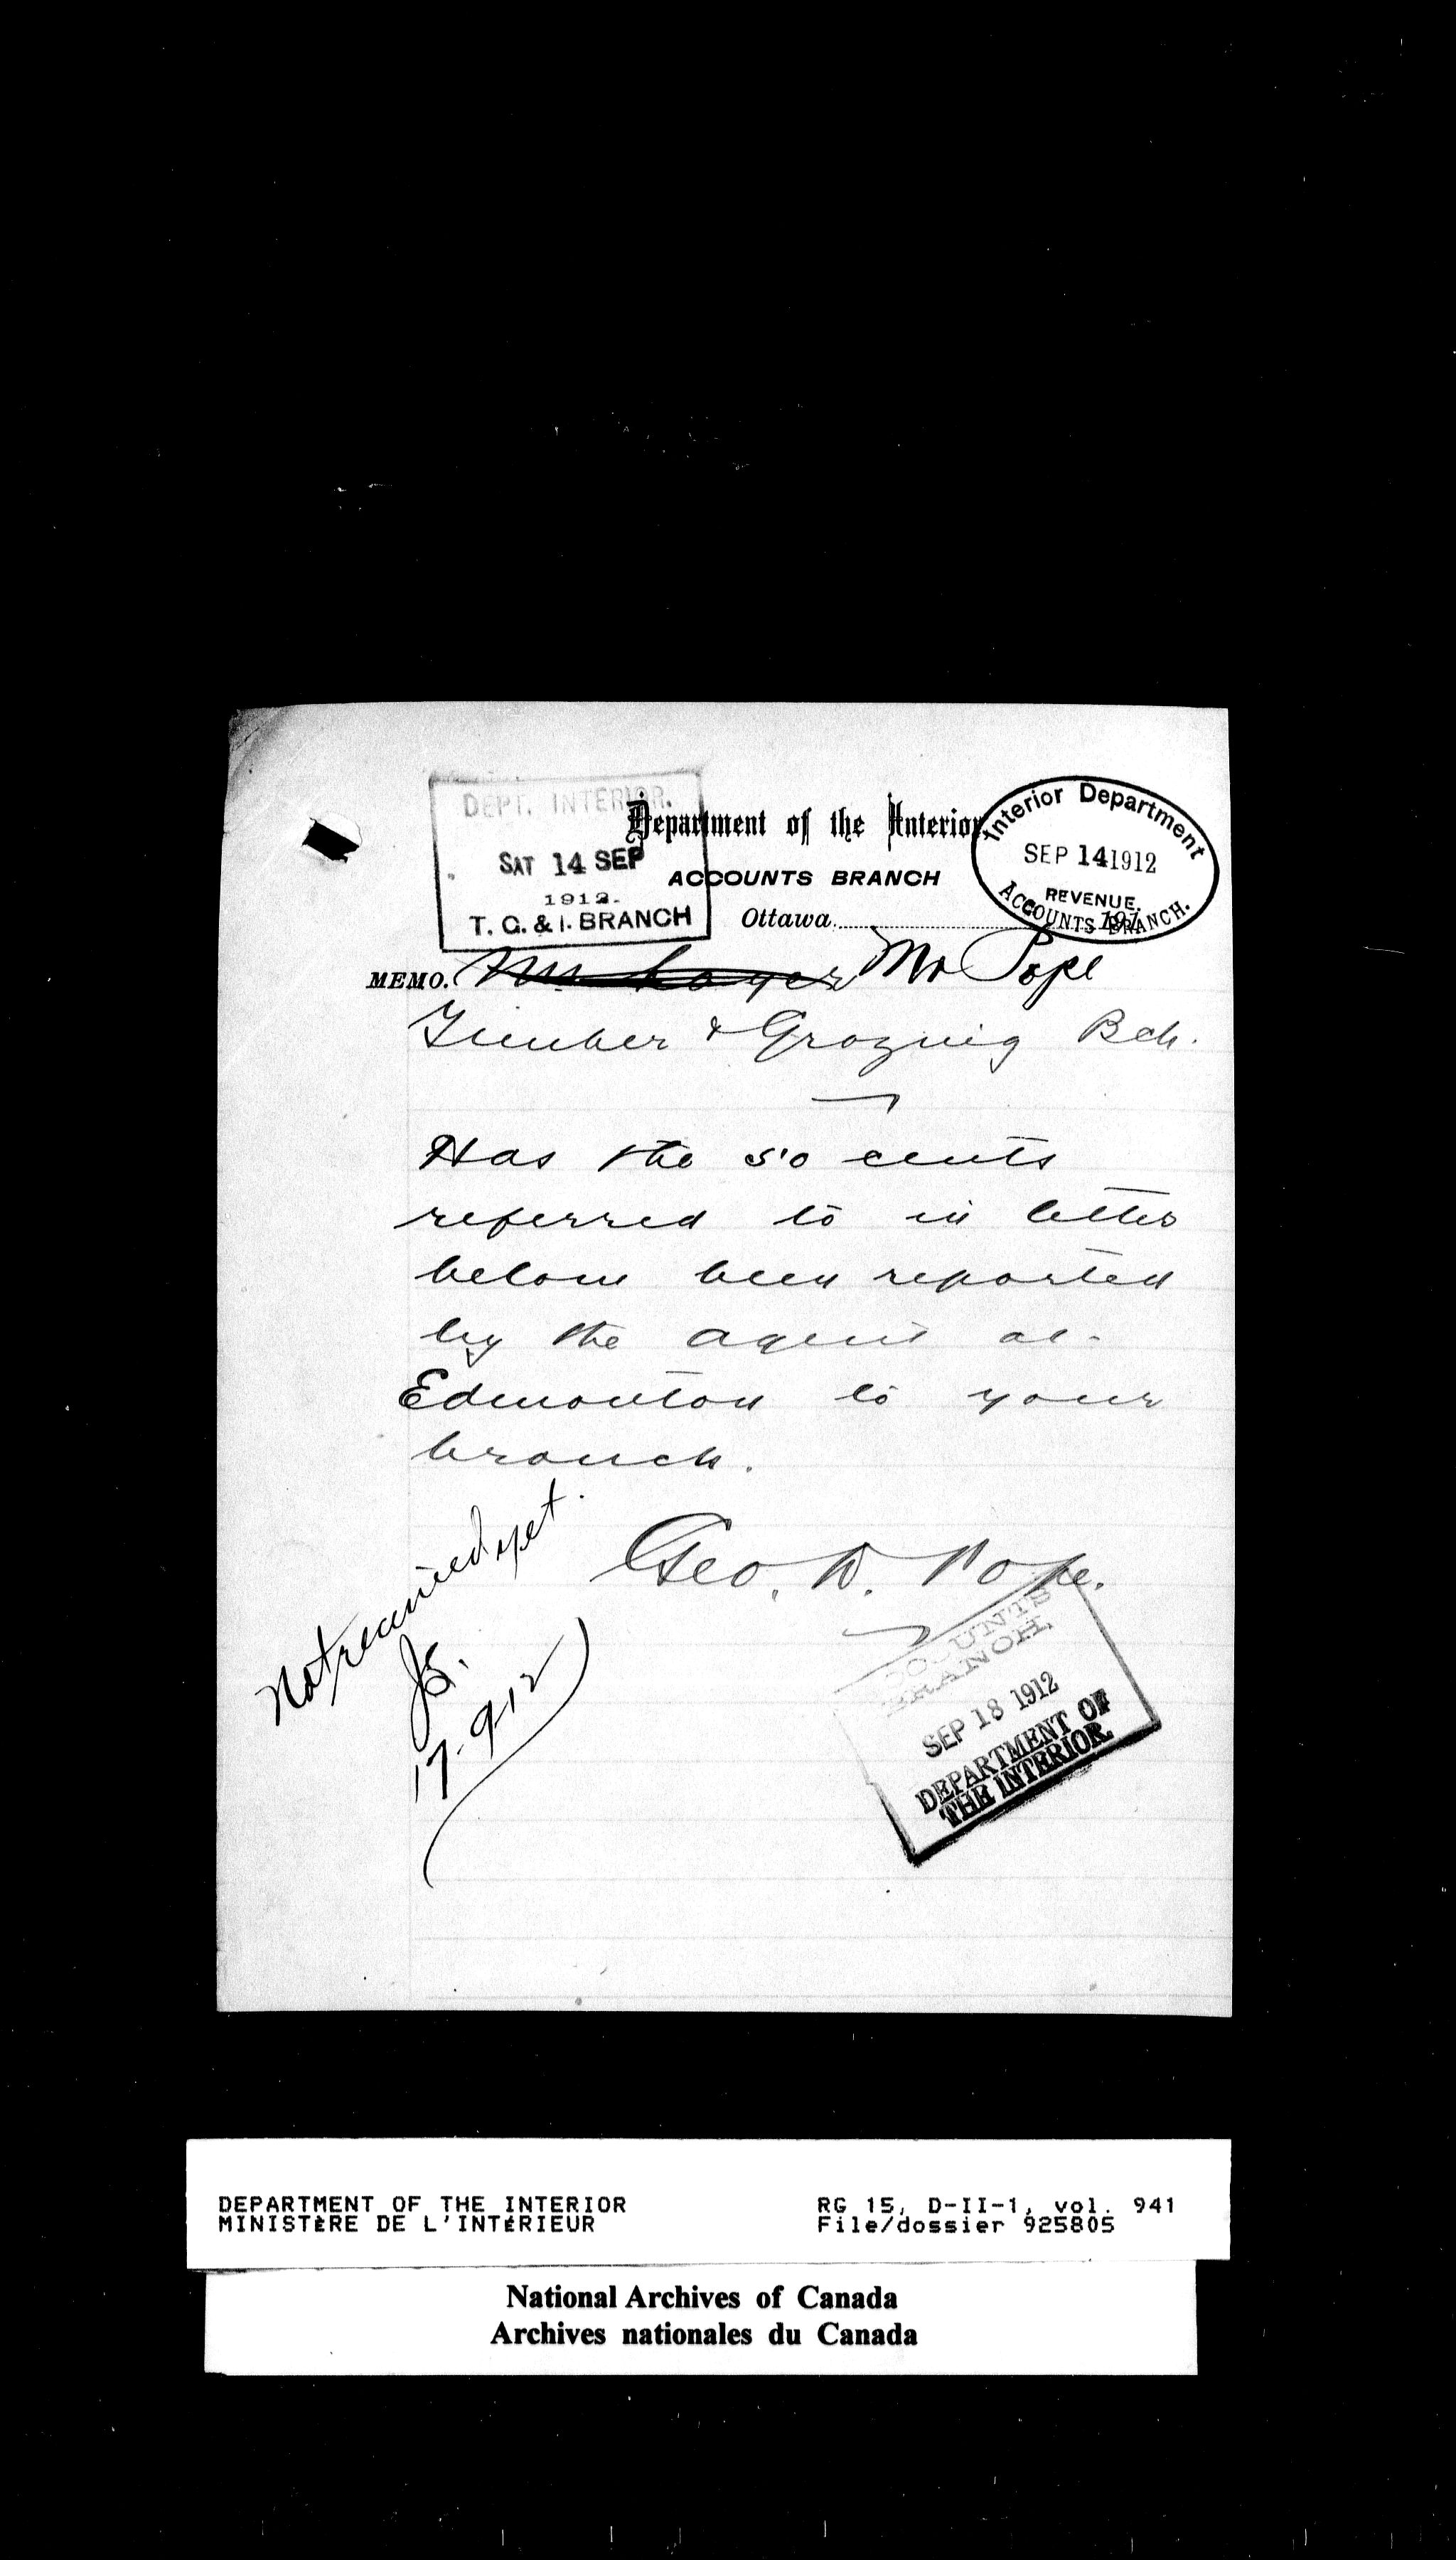 DEPT. INTERIOR.
SAT 14 SEP
1912.
T. G. & I. BRANCH
Department of the Interior.
ACCOUNTS BRANCH
Ottawa 191
Interior Department
SEP 14 1912
REVENUE.
ACCOUNTS BRANCH.
MEMO. Mr Pope
Timber & Grazing Bch.
Has the 50 cents
referred to in letter
below been reported
by the agent at
Edmonton to your
branch.
Geo. D. Pope.
Not received yet.
17-9-12
ACCOUNTS
BRANCH.
SEP 18 1912
DEPARTMENT OF
THE INTERIOR.
DEPARTMENT OF THE INTERIOR
MINISTÈRE DE L'INTÉRIEUR
RG 15, D-II-1, vol. 941
File/dossier 925805
National Archives of Canada
Archives nationales du Canada